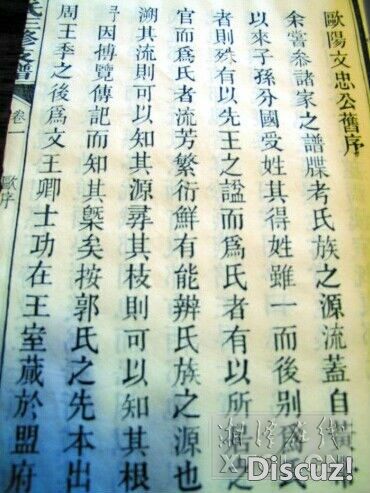 歐陽文忠公舊序
余嘗叅諸家之譜牒考氏族之源流蓋自
以來子孫分國受姓其得姓雖一而後別爲
者則殊有以先王之謚而爲氏者有以所
官而爲氏者流芳繁衍鮮有能辨氏族之源也
溯其流則可以知其源尋其枝則可以知其根
因博覽傳記而知其槩矣按郭氏之先本出
周王季之後爲文王卿士功在王室蔵於盟府
修 譜
卷一
歐序
Discuz!